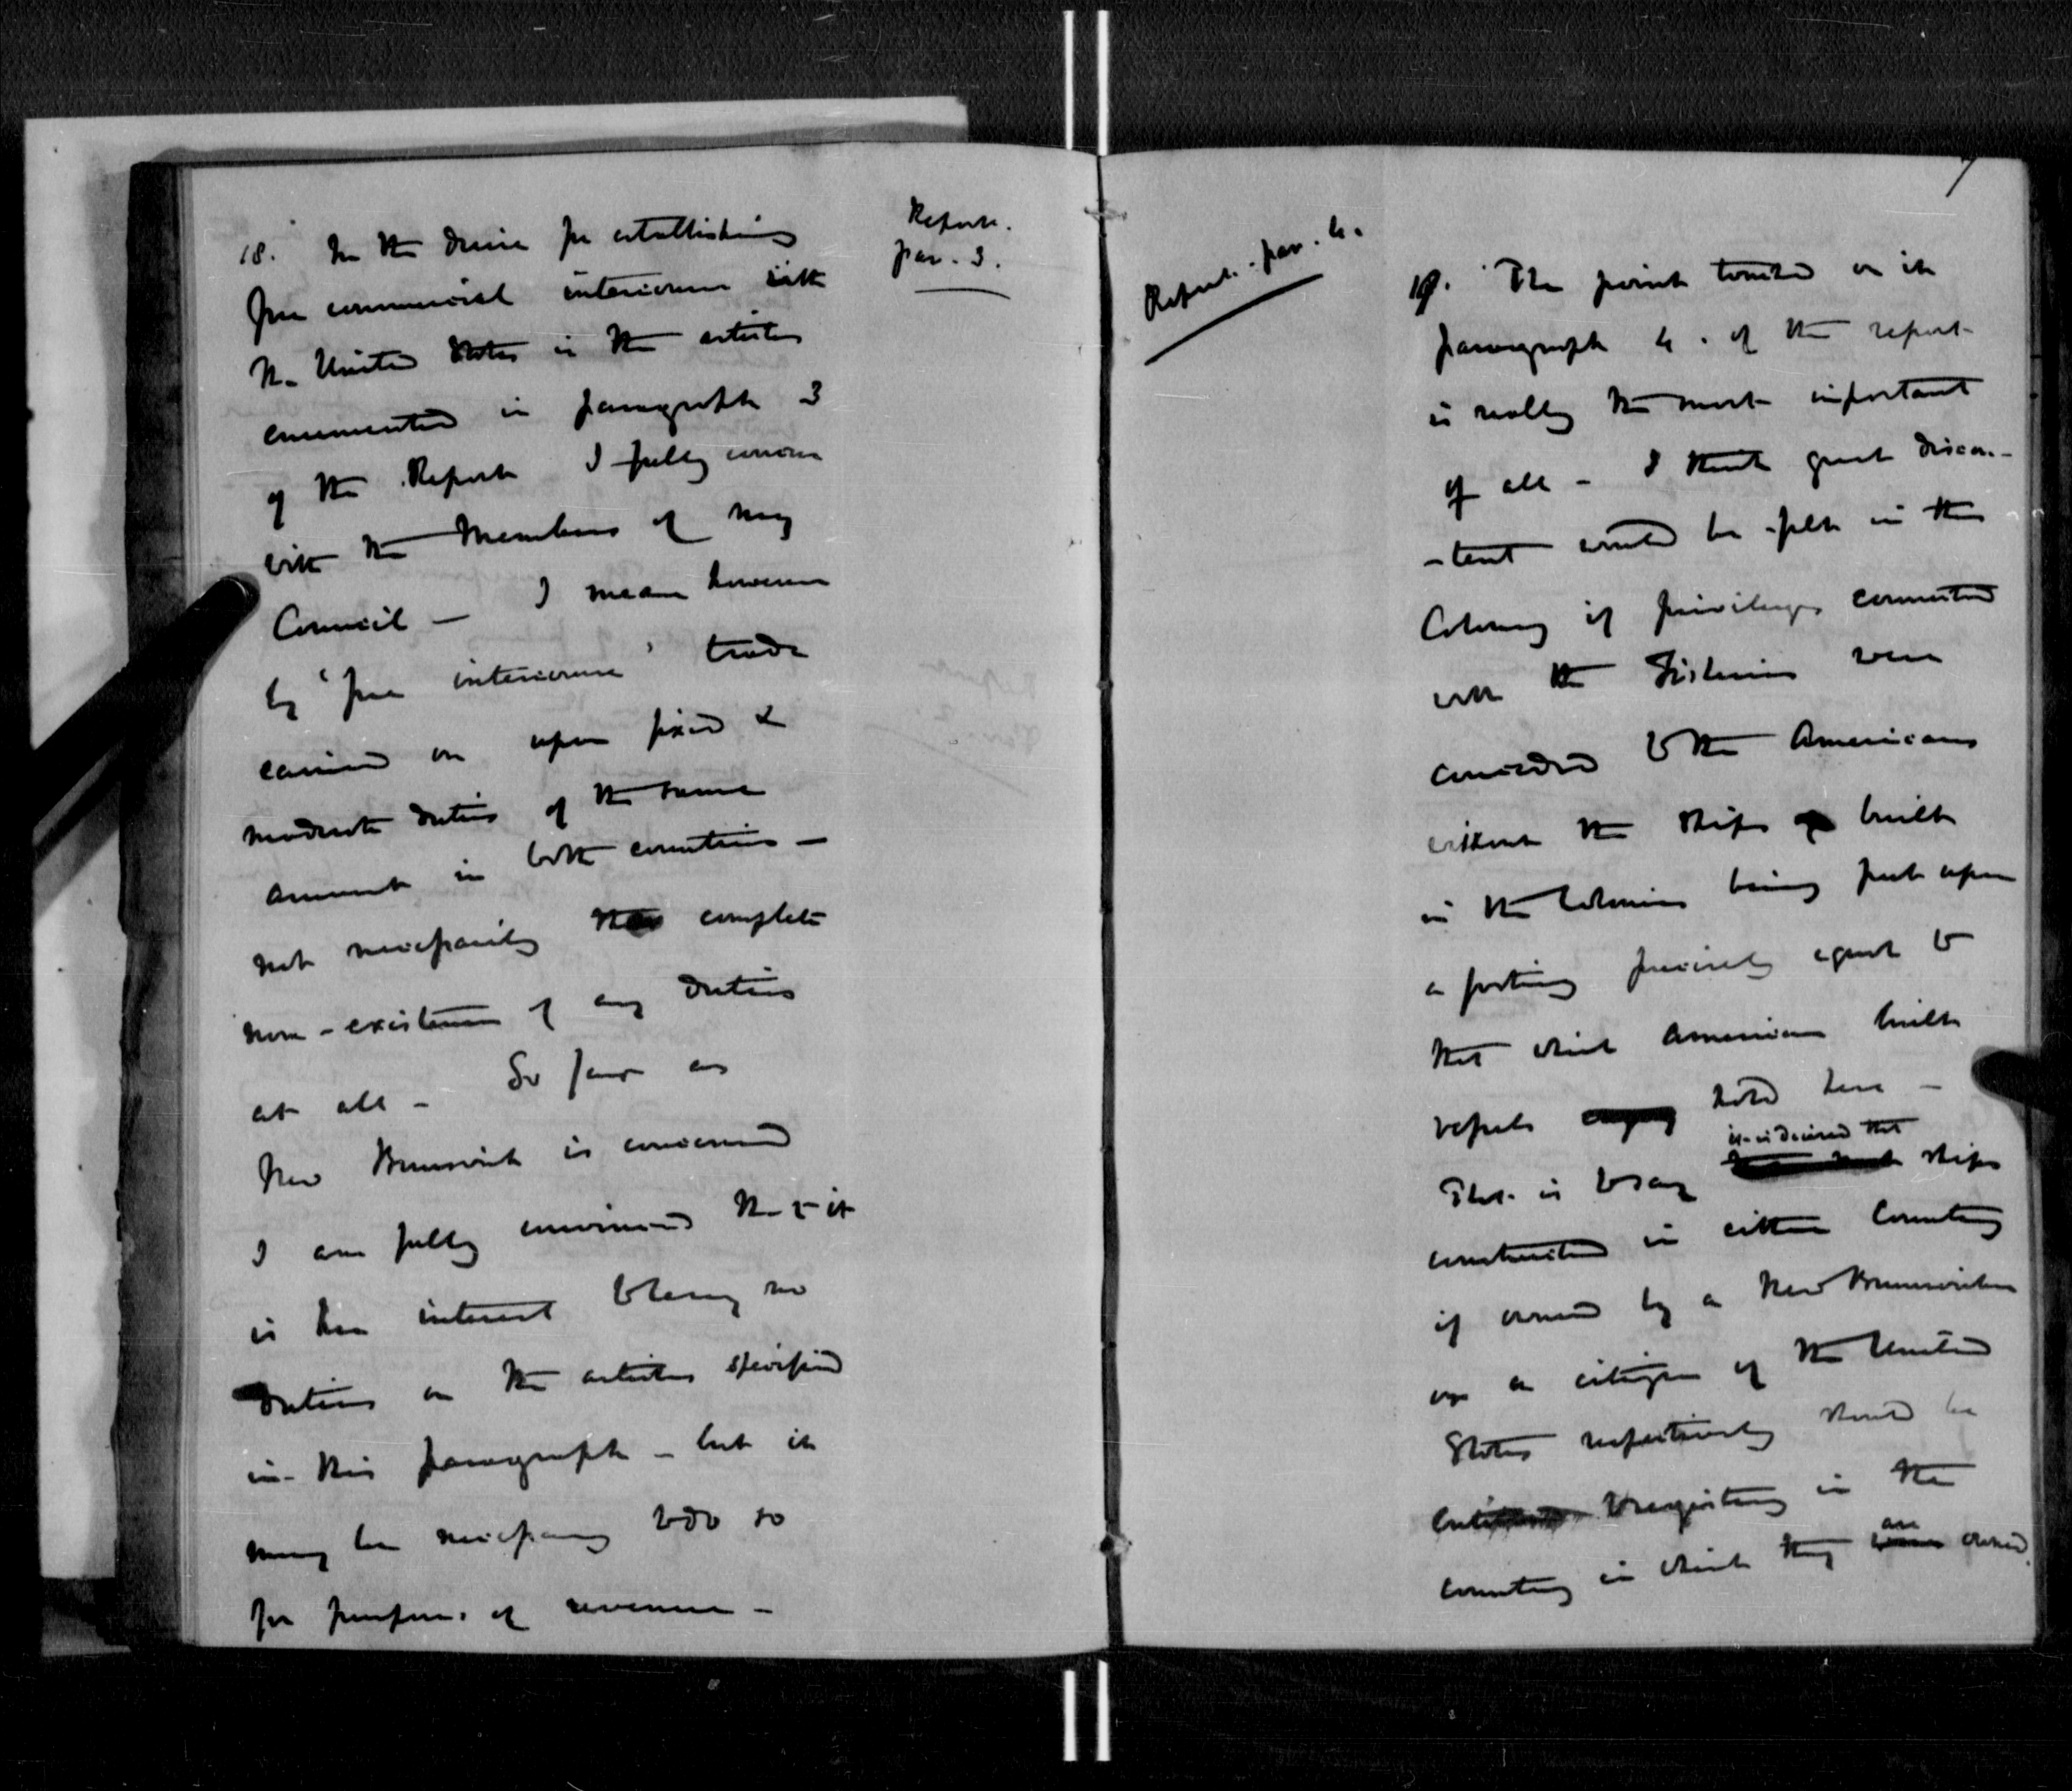 18. In the desire for establishing
free commercial intercourse with
the United States in the articles
enumerated in paragraph 3
of the Report I fully concur
with the Members of my
Council — I mean however
by "free intercourse" trade
carried on upon fixed &
moderate duties of the same
amount in both countries —
not necessarily the complete
non-existence of any duties
at all — So far as
New Brunswick is concerned
I am fully convinced that it
is her interest to levy no
duties on the articles specified
in this paragraph — but it
may be necessary to do so
for purposes of revenue —
Report.
par. 3.
7
Report. par. 4.
19. The point touched on in
paragraph 4. of the report
is really the most important
of all — I think great discon-
-tent would be felt in this
Colony if privileges connected
with the Fisheries were
conceded to the Americans
without the ships built
in the Colonies being put upon
a footing precisely equal to
that which American built
vessels hold here —
it is desired that
That is to say ships
constructed in either Country
if owned by a New Brunswicker
or a citizen of the United
States respectively should be
entitled to registry in the
are
country in which they owned.